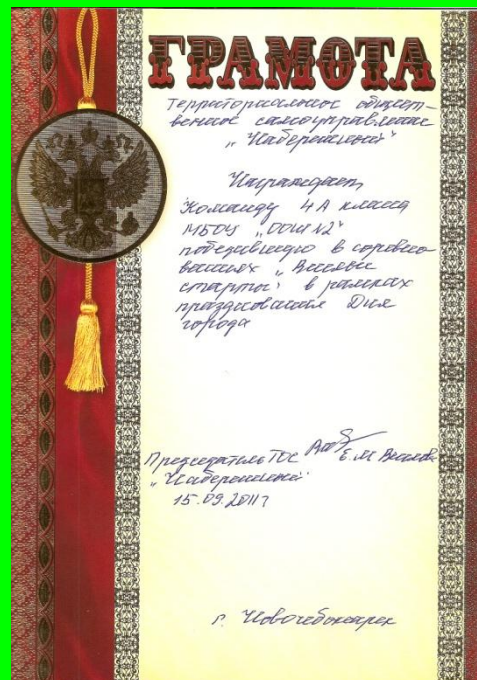 ГРАМОТА
Территориальное общест-
венное самоуправление
„Набережный"
Награждает
Команду 4А класса
МБОУ „ООШ №2"
победившую в соревно-
ваниях „Веселые
старты" в рамках
празднования Дня
города
Председатель ТОС Е.М.
„Набережный"
15.09.2011г
г. Новочебоксарск